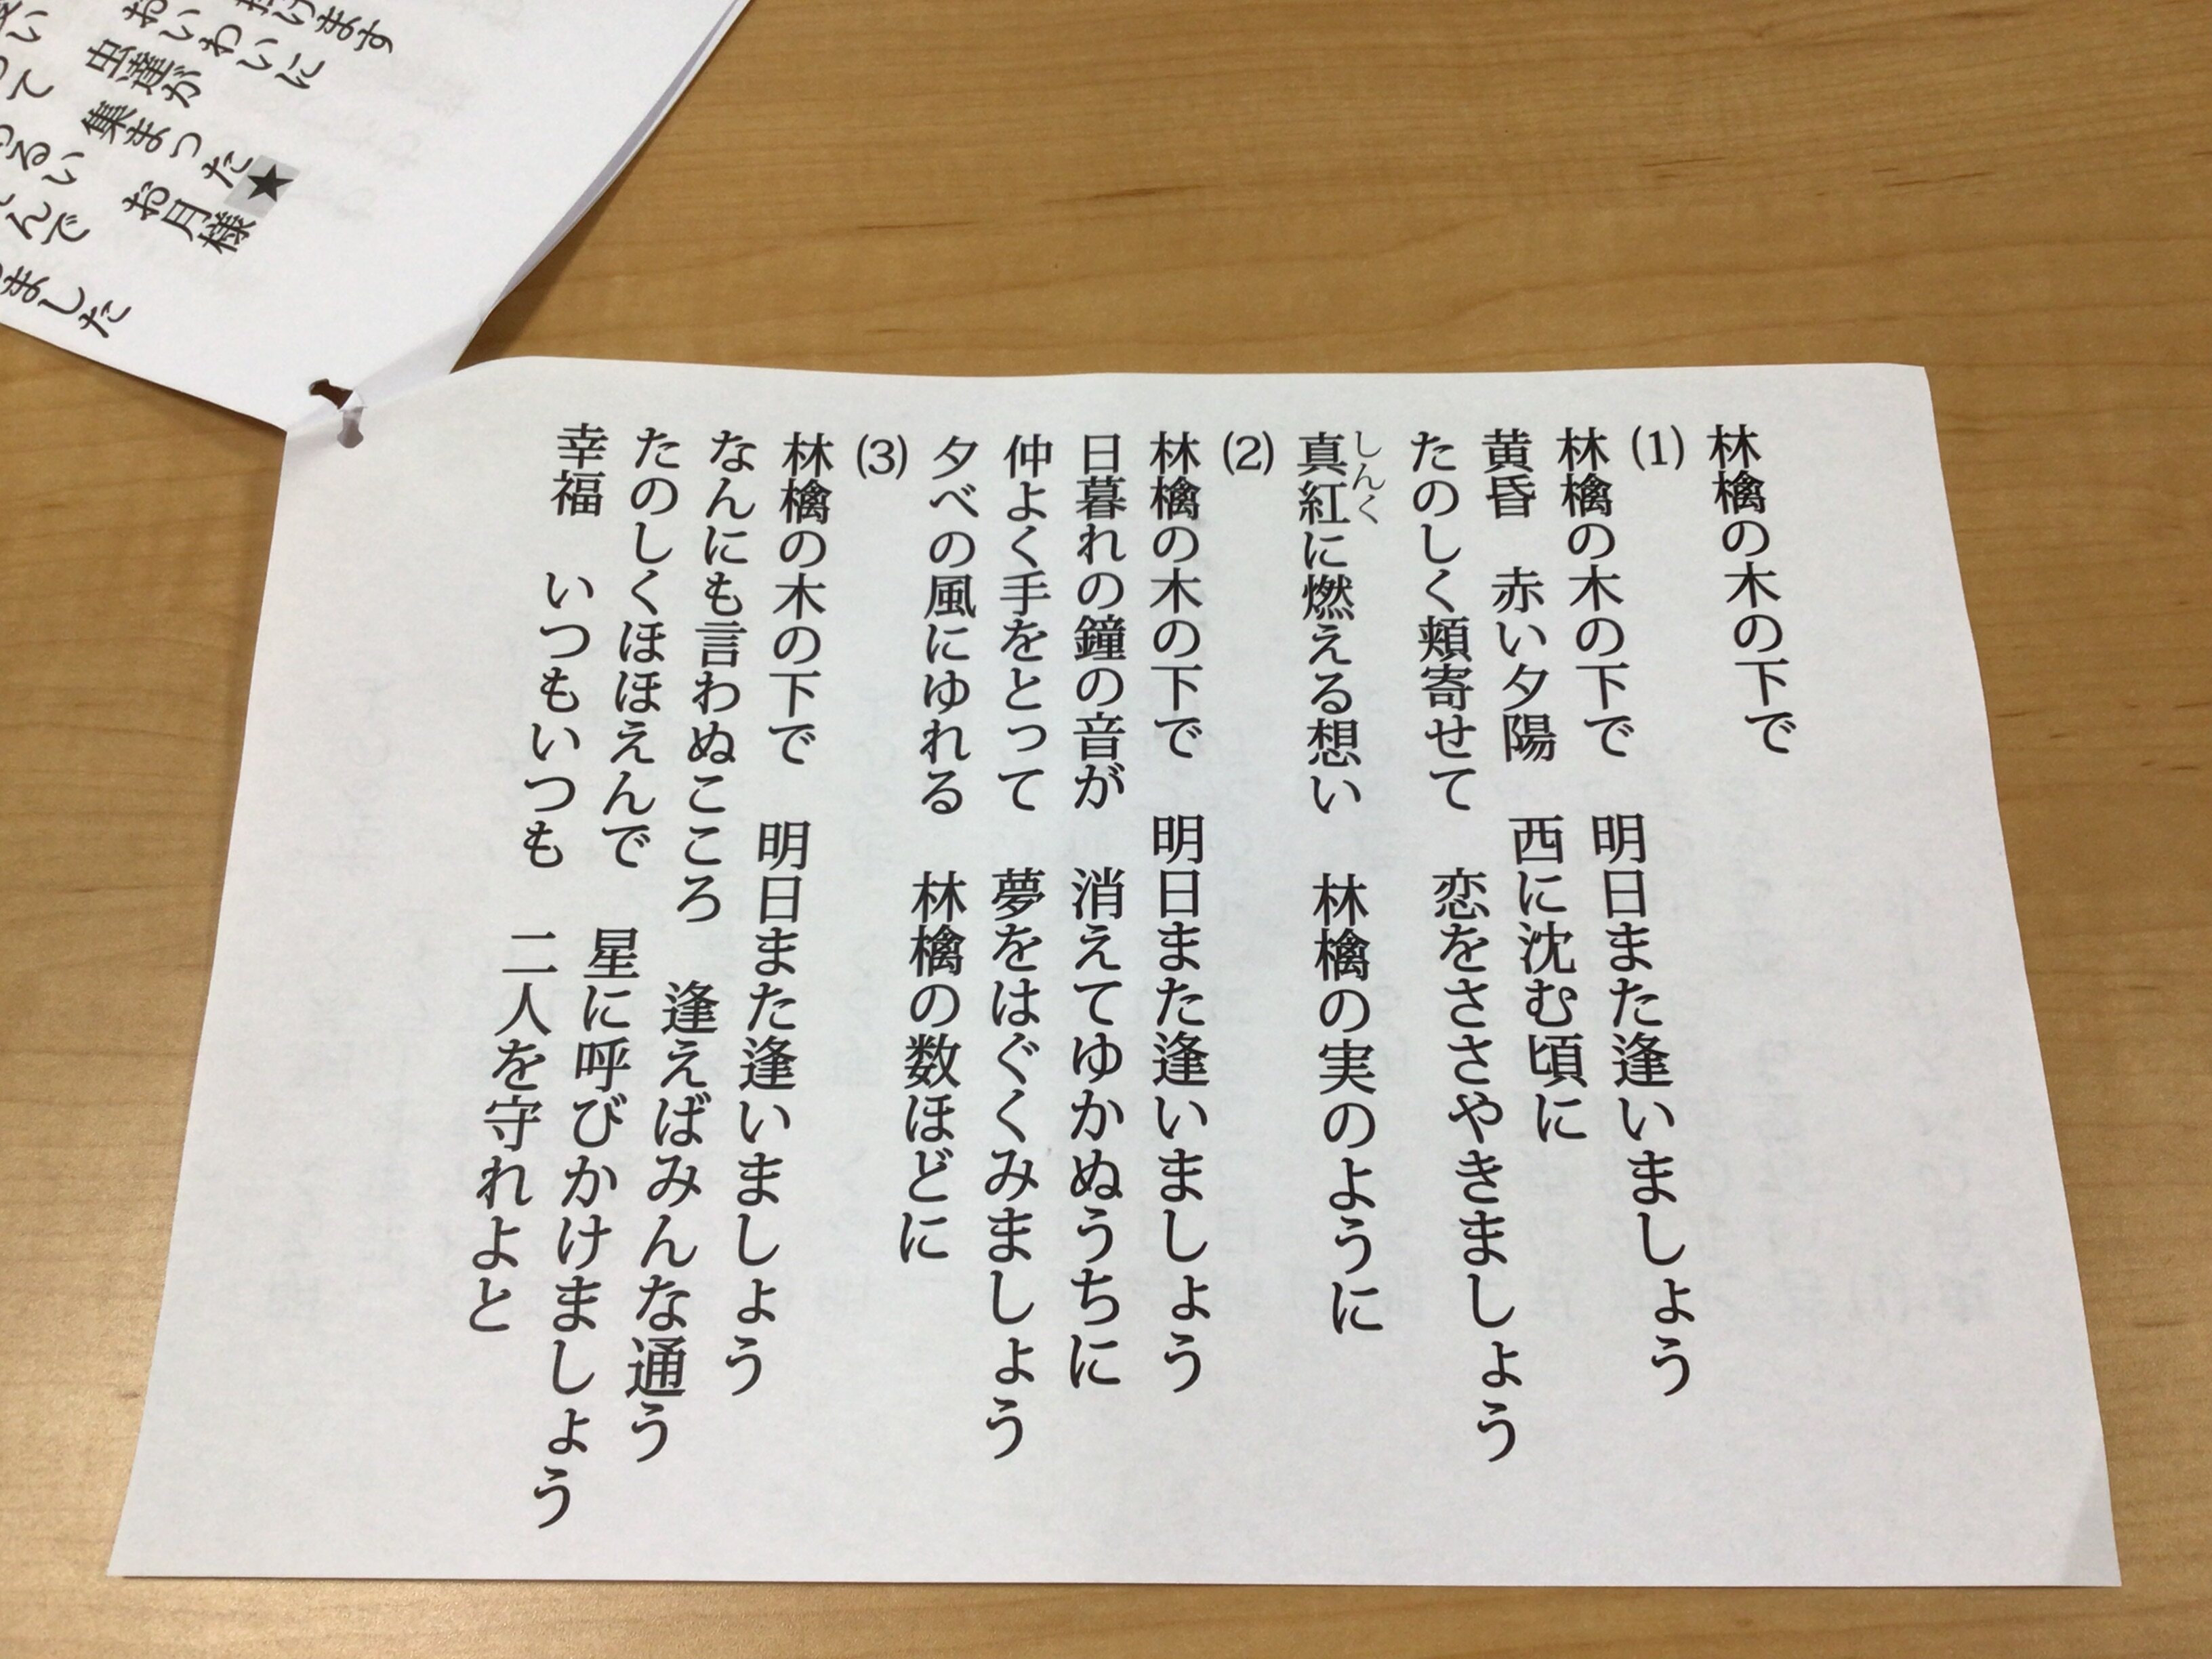 林檎の木の下で
(1)
林檎の木の下で　明日また逢いましょう
黄昏　赤い夕陽　西に沈む頃に
たのしく頬寄せて　恋をささやきましょう
真紅に燃える想い　林檎の実のように
しんく
(2)
林檎の木の下で　明日また逢いましょう
日暮れの鐘の音が　消えてゆかぬうちに
仲よく手をとって　夢をはぐくみましょう
夕べの風にゆれる　林檎の数ほどに
(3)
林檎の木の下で　明日また逢いましょう
なんにも言わぬこころ　逢えばみんな通う
たのしくほほえんで　星に呼びかけましょう
幸福　いつもいつも　二人を守れよと
けます
おいわいに
虫達が　集まった★
るい　お月様
んで
ました